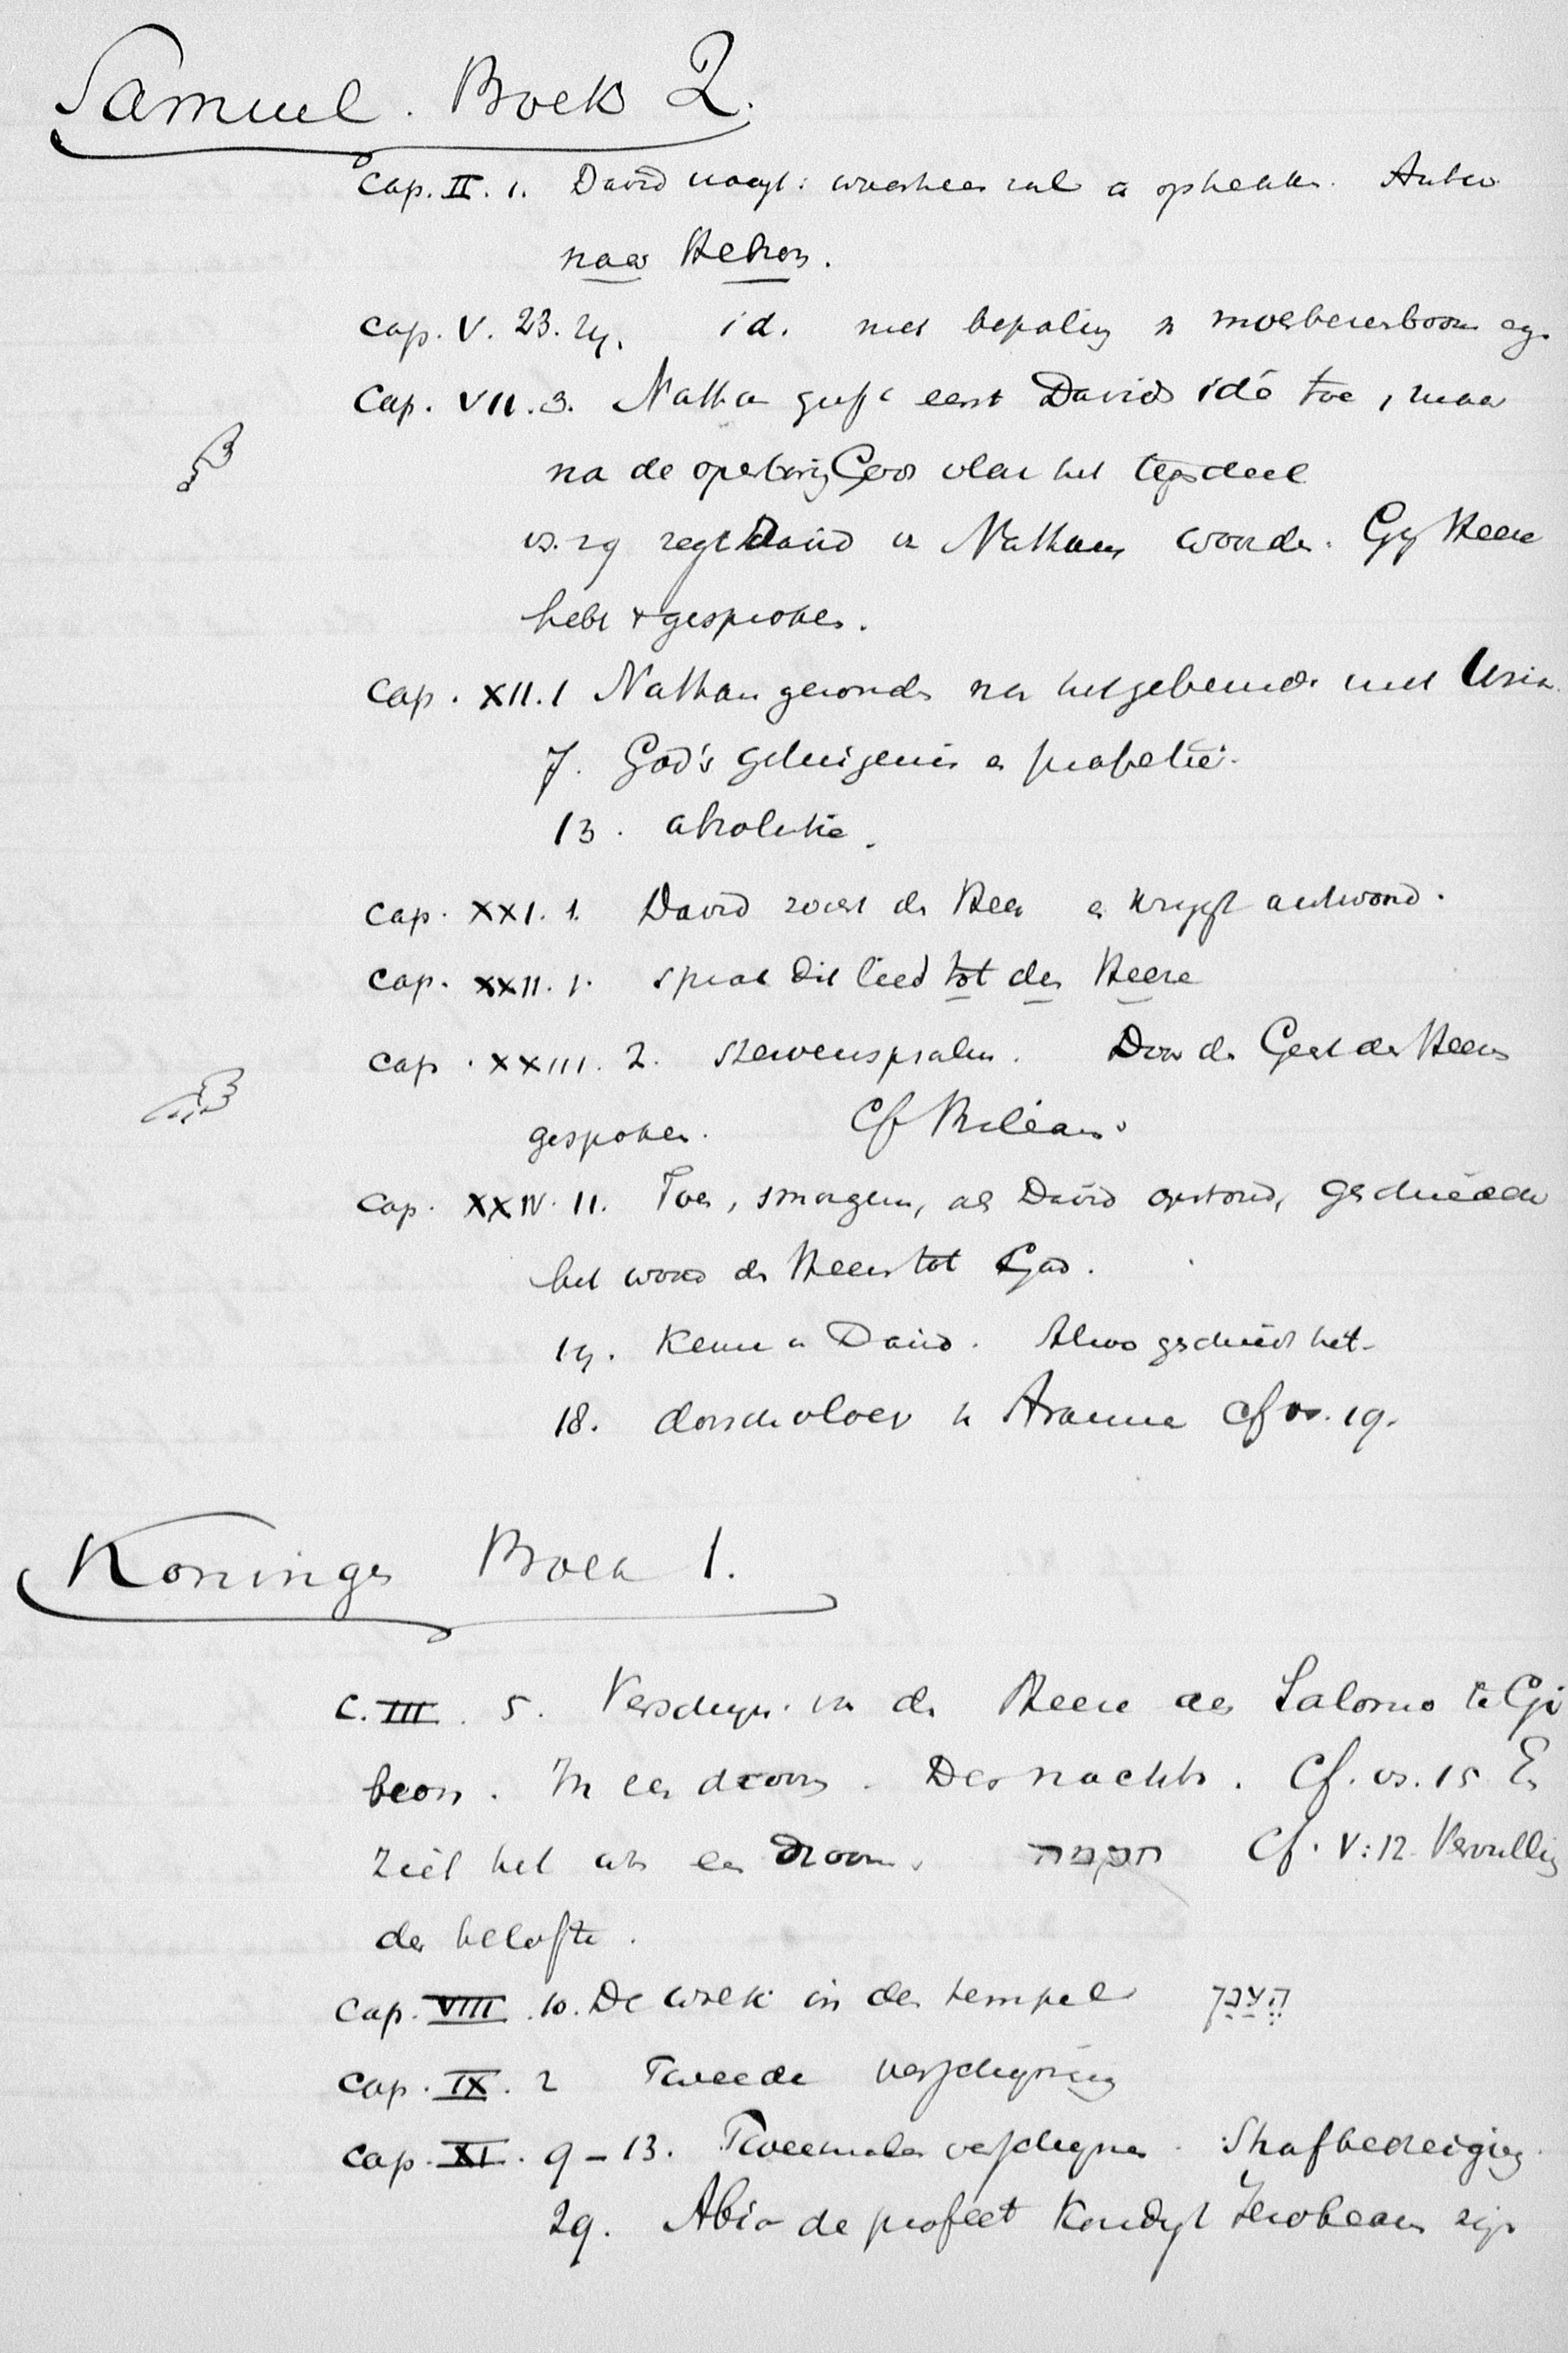 Samuel. Boek 2.
Cap. II. 1. David vraagt: waarheen zal ik optrekken. Antw.
naar Hebron.
Cap. V. 23. 24. id. met bepaling v moerbeienboom
Cap. VII. 3. Nathan geeft eerst Davids idé toe, maar
na de openbaring Gods vlak het tegendeel
vs. 29 zegt David v Nathans woorden. Gij Heere
hebt + gesproken.
Cap. XII. 1 Nathan gezonden na het gebeurde met Uria.
7. God's getuigenis en profetie.
13. absolutie.
Cap. XXI. 1. David zoekt den Heer en krijgt antwoord.
Cap. XXII. 1. sprak dit lied tot den Heere
Cap. XXIII. 2. stervenspsalm. Door den Geest des Heeren
gesproken. Cf Bileam.
Cap. XXIV. 11. Toen, smorgens, als David opstond, geschiedde
het woord des Heeren tot Gad.
14. Keuze v David. Alzoo geschiedt het.
18. dorschvloer v Arauna cf vs. 19.
Koningen Boek 1.
C. III. 5. Verschijn. van den Heere aan Salomo te Gi
beon. In een droom. Des nachts. Cf. vs. 15 En
ziet het was een droom. Cf. V:12 Vervulling
der belofte.
Cap. VIII. 10. De wolk in den tempel הענן
Cap. IX. 2 Tweede verschijning
Cap. XI. 9-13. Tweemalen verschenen. Strafbedreiging.
29. Abia de profeet kondigt Jerobeam zijn